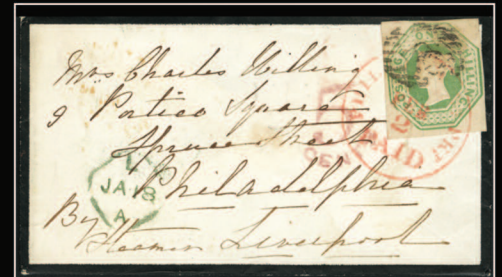 Mrs Charles Willing
9 Portico Square
Spruce Street
Philadelphia
By
Steamer Liverpool
POSTAGE ONE SHILLING
PAID
JA 18
A